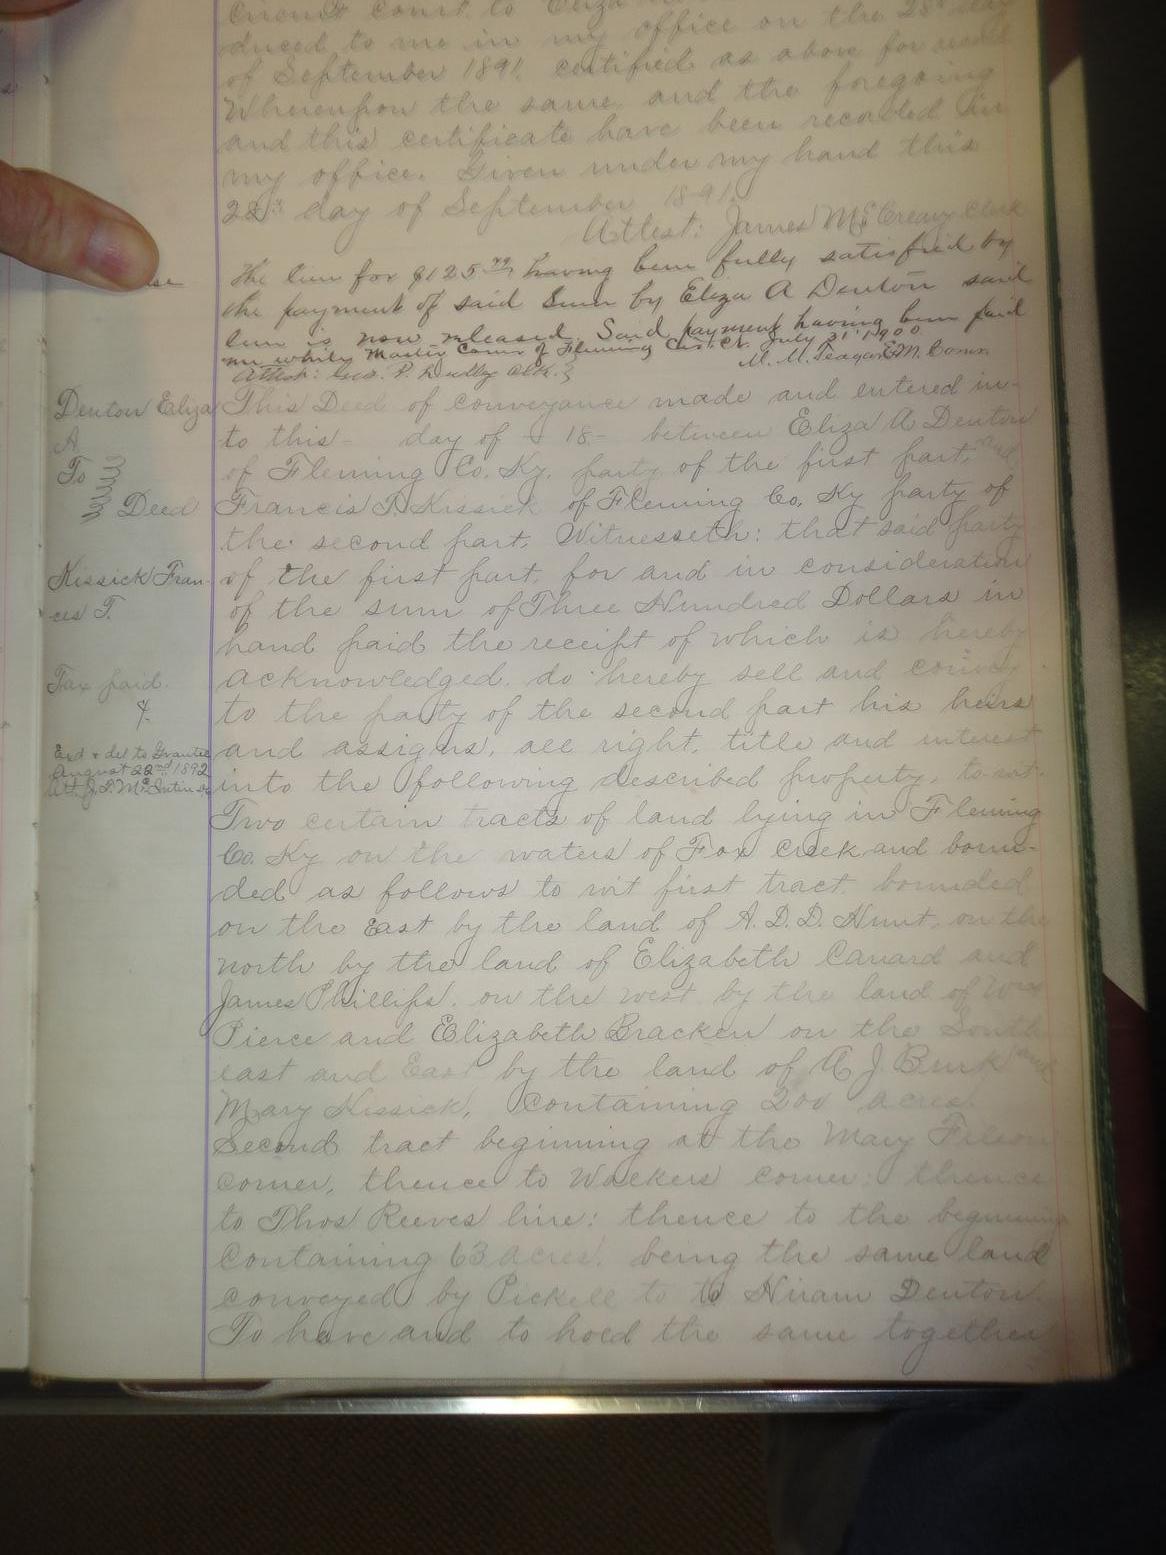 Circuit Court to Eliza
duced to me in my office on the 28th day
of September 1891 certified as above for record
Whereupon the same and the foregoing
and this certificate have been recorded in
my office. Given under my hand this
28th day of September 1891.
Attest: James McCreary Clerk
The lien for $125 having been fully satisfied by
the payment of said sum by Eliza A Denton said
lien is now released. Said payment having been paid
me while Master Comr of Fleming Cir. Ct. July 31 1900
M. M. Teagar Ex M. Comr.
Attest: Geo. P. Dudley Clk.
Denton Eliza
A
To
Deed
Kissick Fran-
ces T.
Tax paid.
Exd & del to Grantee
August 22nd 1892
This Deed of conveyance made and entered in-
to this - day of - 18 - between Eliza A Denton
of Fleming Co. Ky. party of the first part, and
Francis T. Kissick of Fleming Co, Ky party of
the second part, Witnesseth: that said party
of the first part, for and in consideration
of the sum of Three Hundred Dollars in
hand paid the receipt of which is hereby
acknowledged. do hereby sell and convey
to the party of the second part his heirs
and assigns, all right, title and interest
into the following described property, to-wit.
Two certain tracts of land lying in Fleming
Co. Ky on the waters of Fox Creek and boun-
ded as follows to wit first tract bounded
on the East by the land of A. D. D. Hunt, on the
north by the land of Elizabeth Canard and
James Phillips. on the west by the land of Wm
Pierce and Elizabeth Bracken on the South
east and East by the land of A J. Burk and
Mary Kissick, Containing 200 acres.
Second tract beginning at the Mary
corner, thence to Walkers corner; thence
to Thos Reeves line: thence to the beginning
Containing 63 acres. being the same land
conveyed by Pickell to to Hiram Denton.
To have and to hold the same together